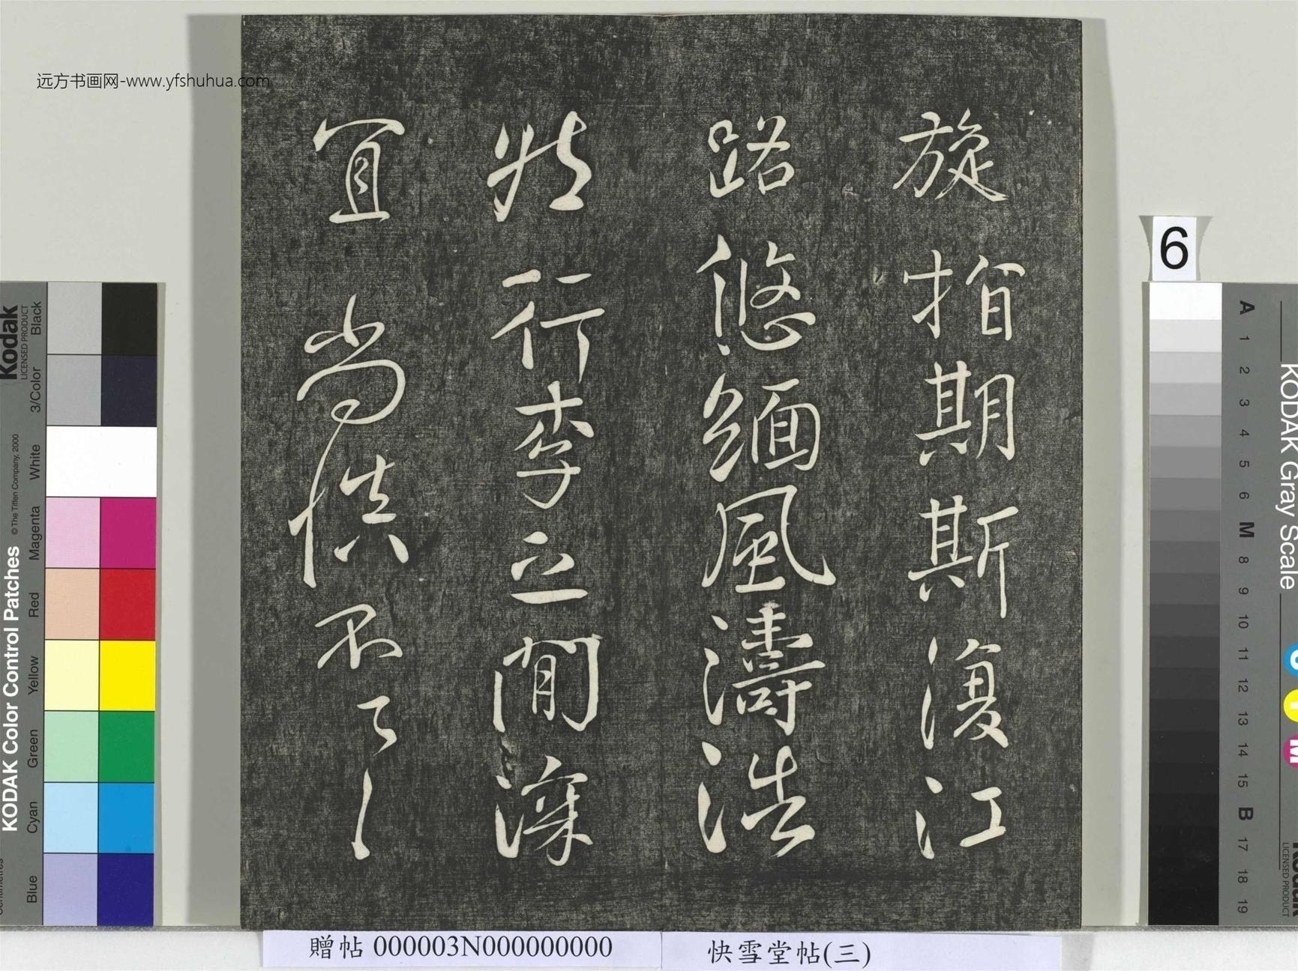 远方书画网-www.yfshuhua.com
旋指期斯復江
路悠緬風濤浩
然行李之間深
宜尚慎不了
贈帖 000003N000000000
快雪堂帖(三)
6
Kodak
LICENSED PRODUCT
Black
3/Color
White
Magenta
Red
Yellow
Green
Cyan
Blue
© The Tiffen Company, 2000
KODAK Color Control Patches
KODAK Gray Scale
A 1 2 3 4 5 6 M 8 9 10 11 12 13 14 15 B 17 18 19
C
Y
M